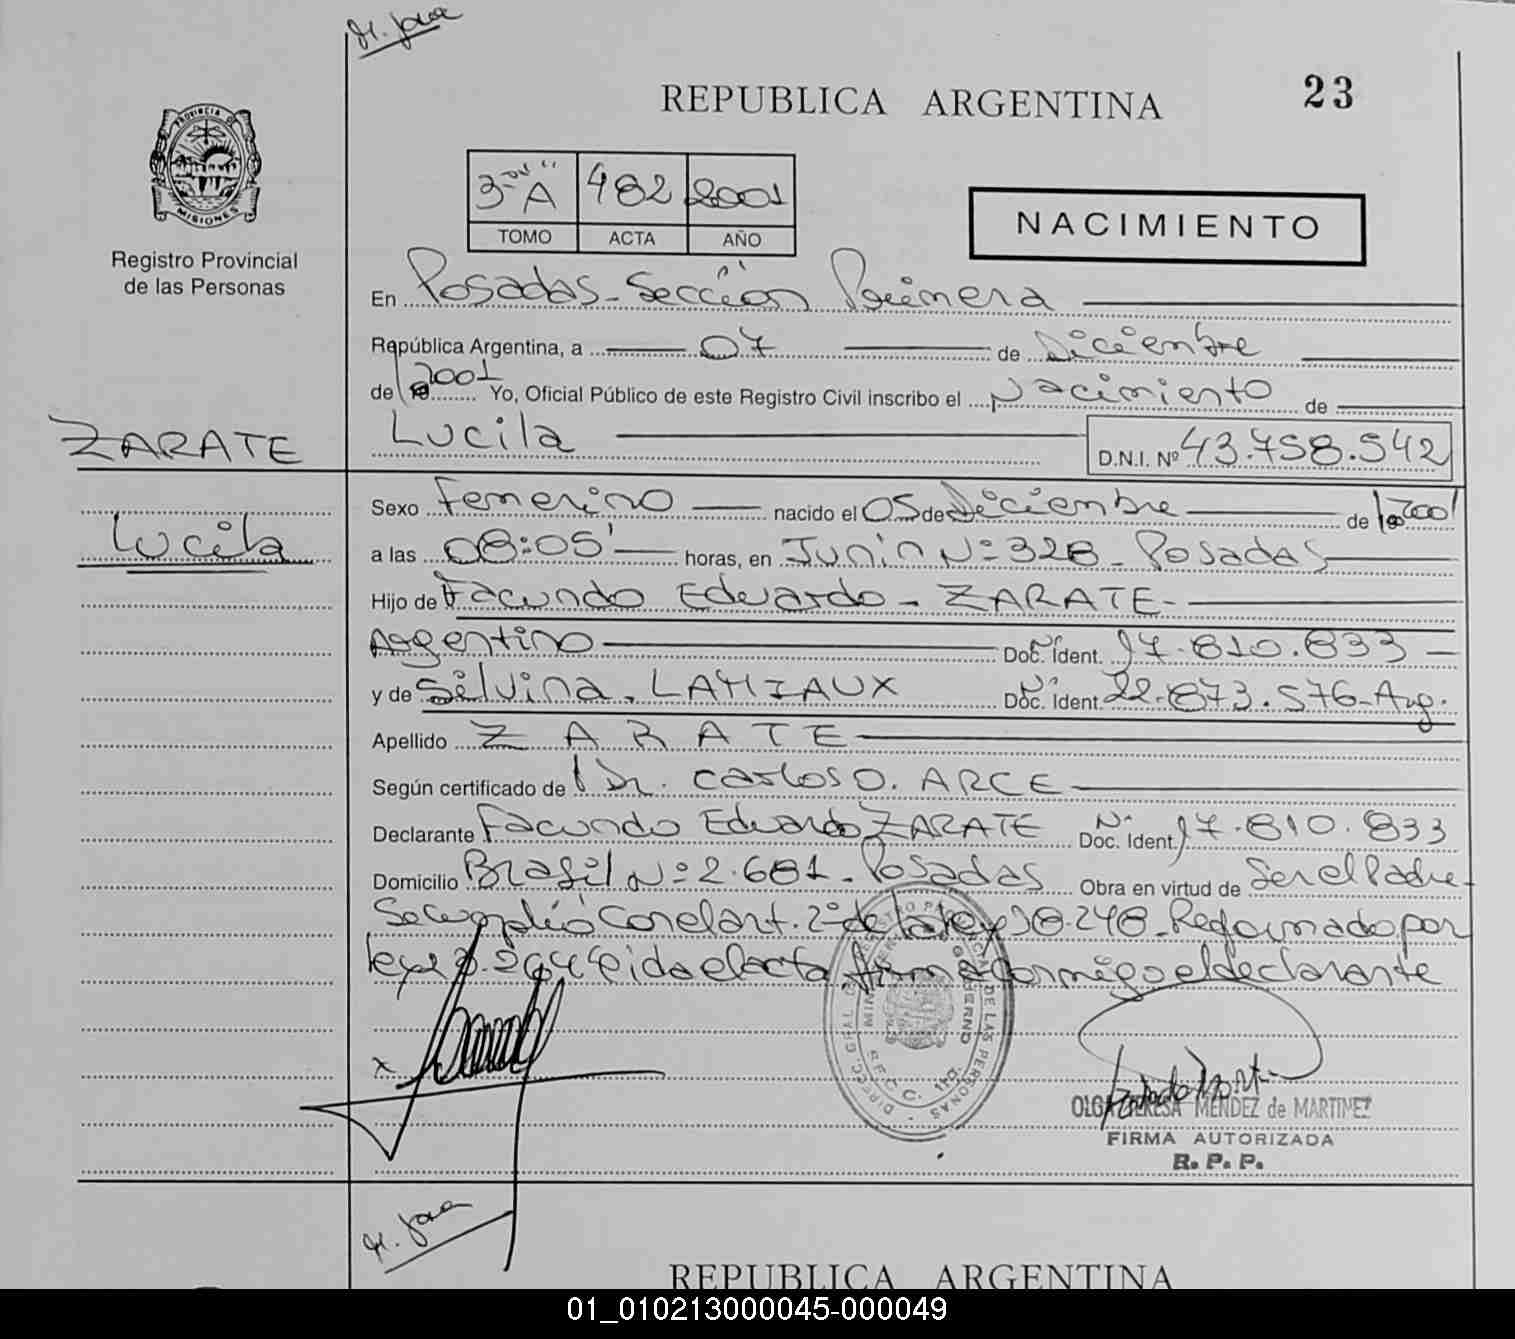 REPUBLICA ARGENTINA
23
PROVINCIA DE
MISIONES
Registro Provincial
de las Personas
3ra "A" 482 2001
TOMO ACTA AÑO
NACIMIENTO
En Posadas - Sección Primera
República Argentina, a 07 de Diciembre
de 2001 Yo, Oficial Público de este Registro Civil inscribo el Nacimiento de
ZARATE
Lucila D.N.I. Nº 43.758.542
Lucila
Sexo Femenino nacido el 05 de Diciembre de 2001
a las 08:05' horas, en Junin Nº 328 - Posadas
Hijo de Facundo Eduardo - ZARATE -
Argentino Nº Doc. Ident. 17.810.833
y de Silvina. LAMIAUX Nº Doc. Ident. 22.873.576 - Arg.
Apellido ZARATE
Según certificado de Dr. Carlos O. ARCE
Declarante Facundo Eduardo ZARATE Nº Doc. Ident. 17.810.833
Domicilio Brasil Nº 2.681 - Posadas Obra en virtud de Ser el Padre -
Se cumplió con el art. 2º de la ley 18.248 - Reformado por
ley 23.264 leida el acta, firma conmigo el declarante
x
DIRECC. GRAL. DE REGISTRO PROVINCIAL DE LAS PERSONAS
OLGA TERESA MENDEZ de MARTINEZ
FIRMA AUTORIZADA
R. P. P.
REPUBLICA ARGENTINA
01_010213000045-000049